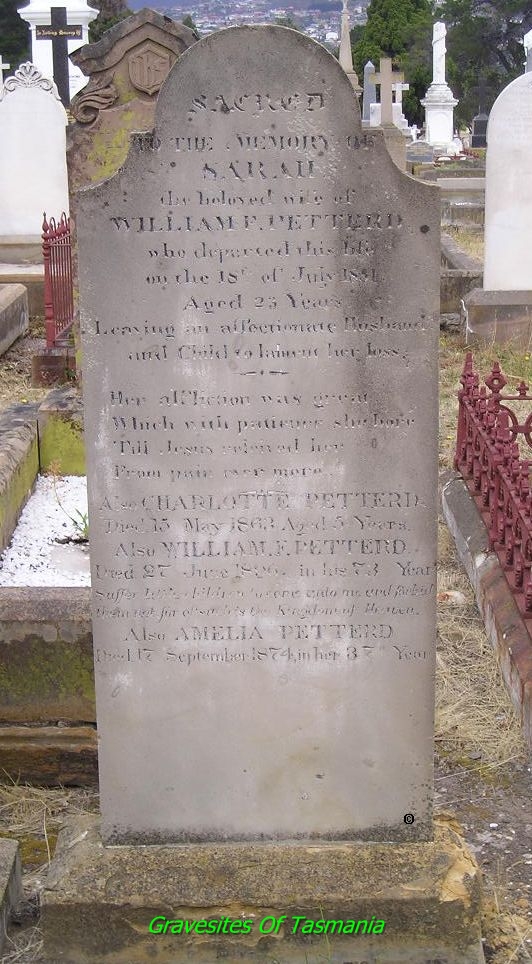 In Loving Memory Of
IHS
SACRED
TO THE MEMORY OF
SARAH
the beloved wife of
WILLIAM F. PETTERD
who departed this life
on the 18th of July
Aged 25 Years
Leaving an affectionate Husband
and Child to lament her loss,
Her affliction was great
Which with patience she bore
Till Jesus releived her
From pain ever more.
Also CHARLOTTE PETTERD
Died 15 May 1863 Aged 5 Years.
Also WILLIAM. F. PETTERD
Died 27 June in his 73 Year
Suffer little children to come unto me and forbid
them not for of such is the Kingdom of Heaven.
Also AMELIA PETTERD
Died 17 September 1874, in her 37th Year
©
Gravesites Of Tasmania